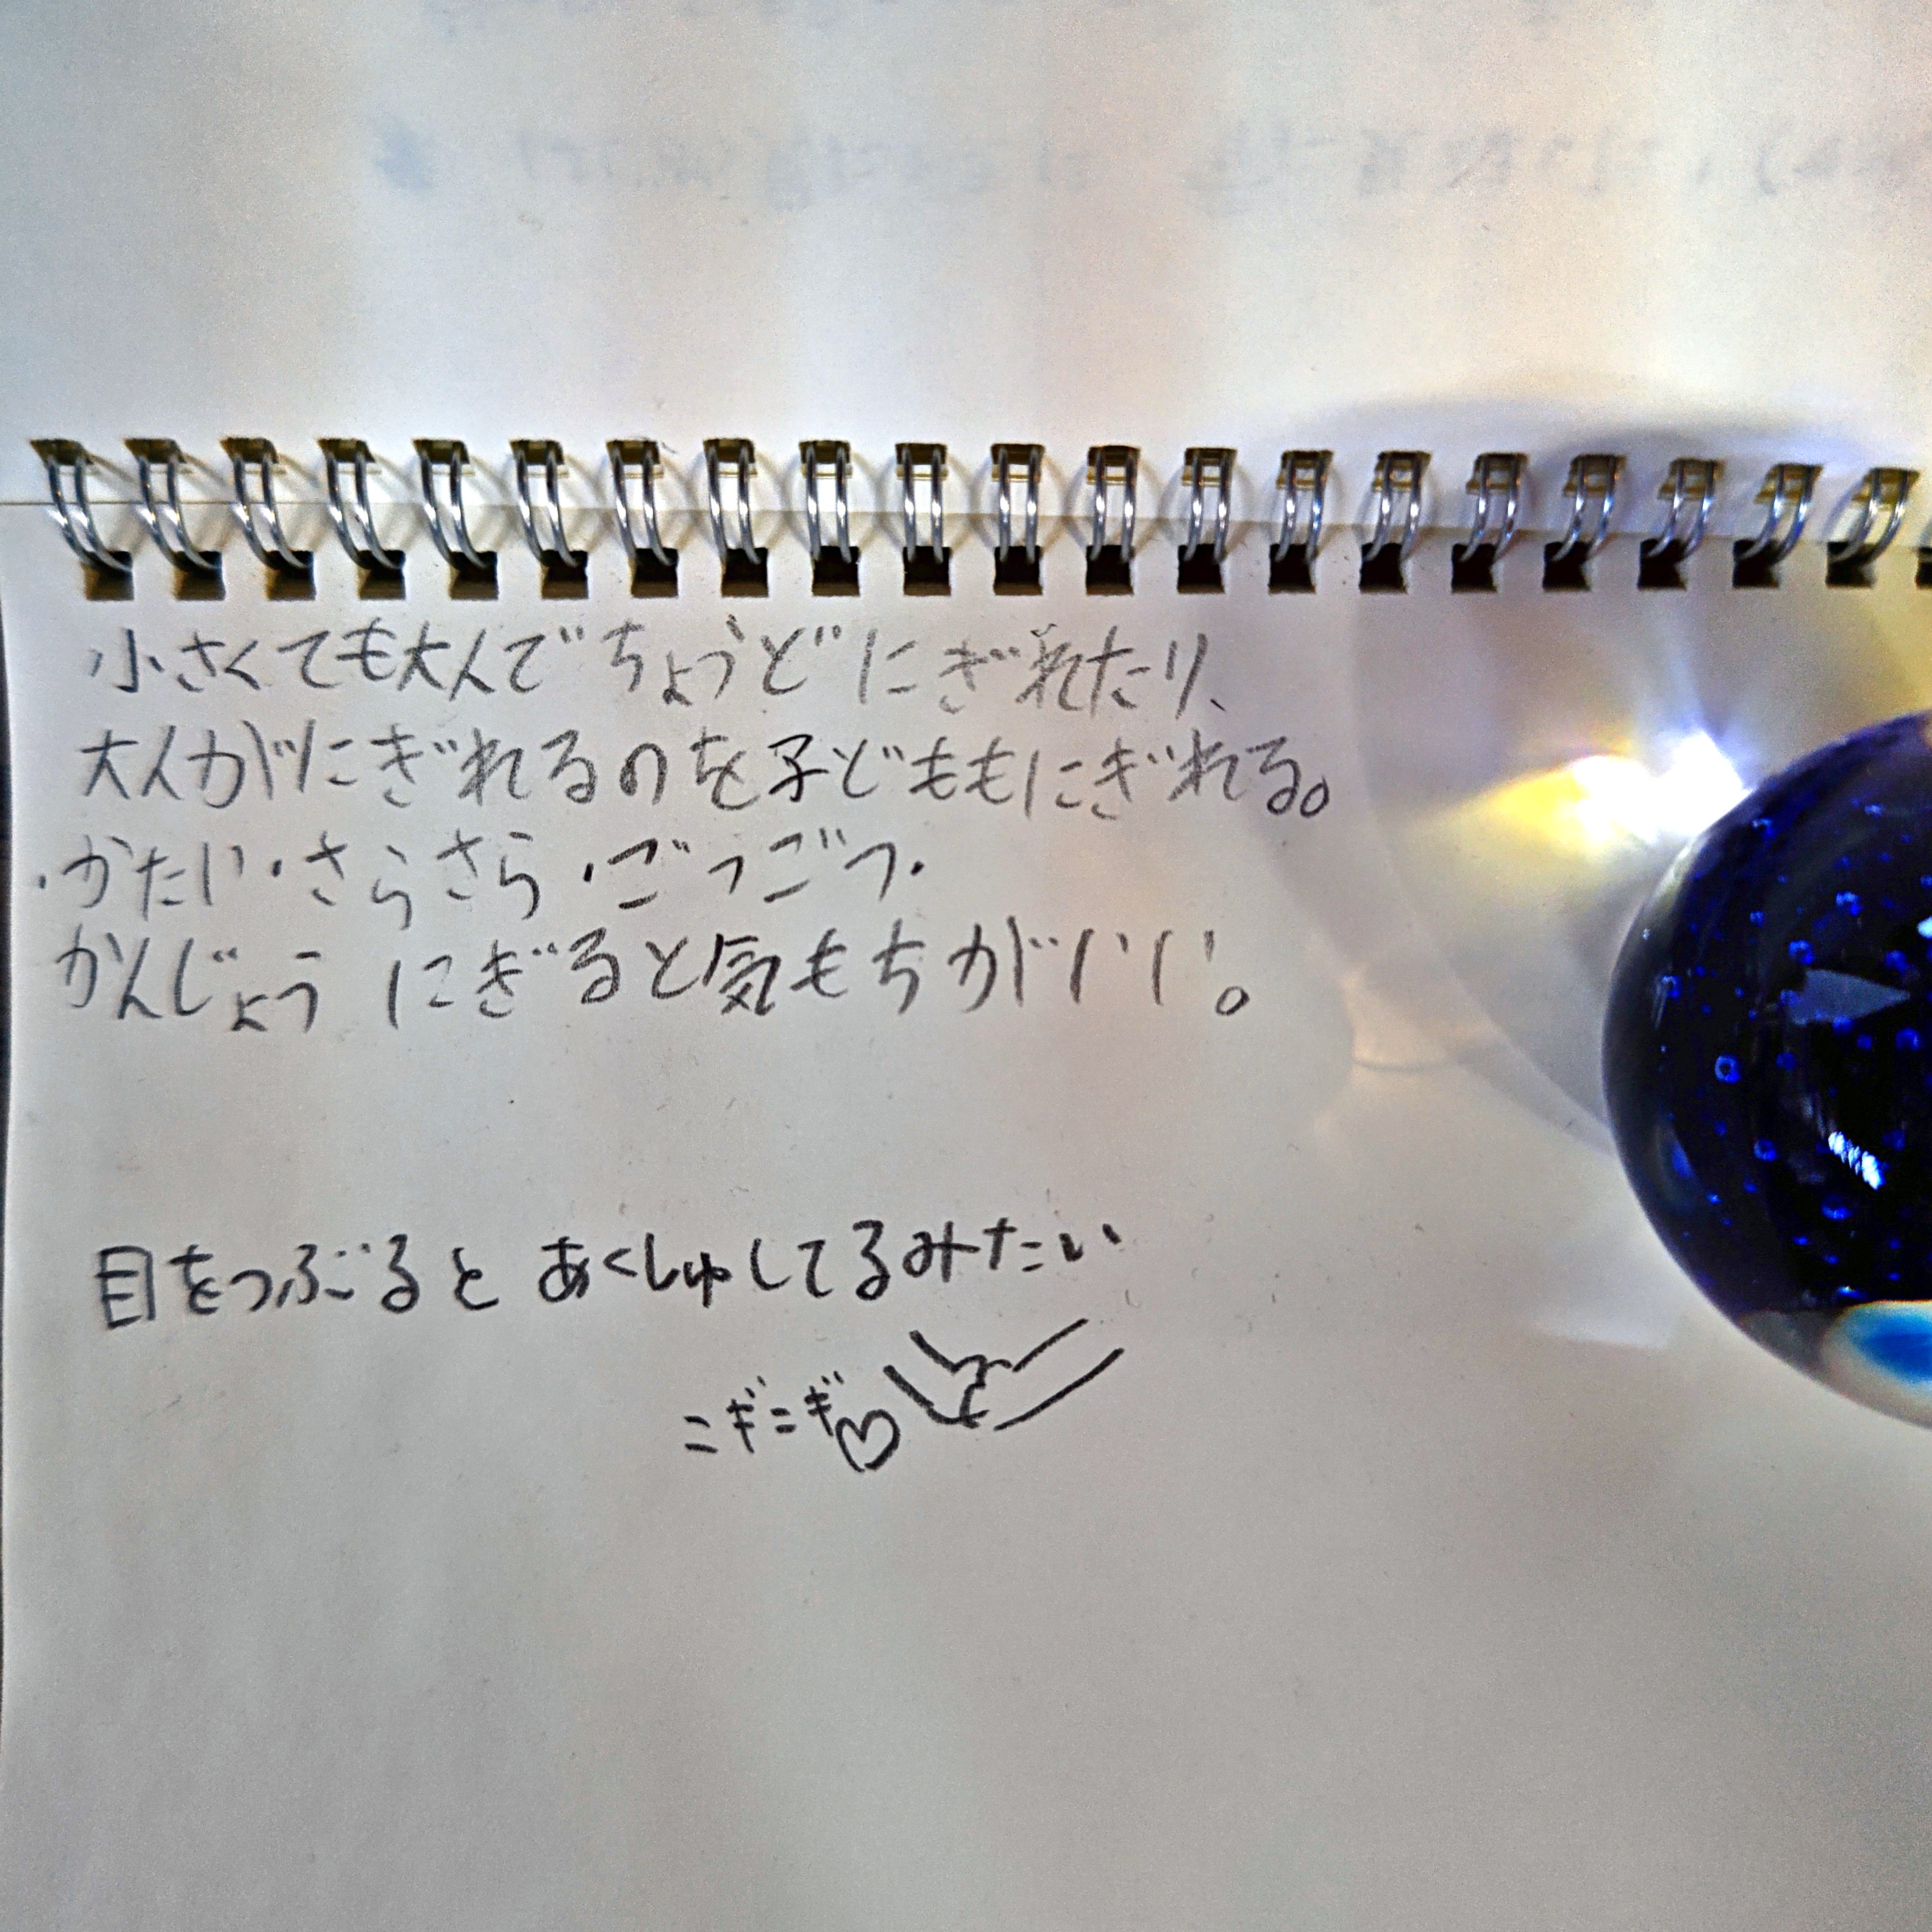 小さくても大人でちょうどにぎれたり、
大人がにぎれるのを子どももにぎれる。
・かたい・さらさら・ごつごつ・
かんじょう にぎると気もちがいい。
目をつぶると あくしゅしてるみたい
ニギニギ♡